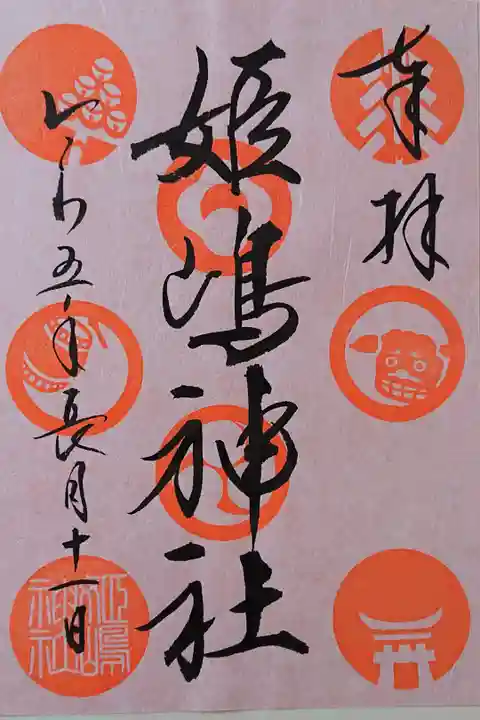 奉拝
姫嶋神社
令和五年長月十一日
姫嶋神社